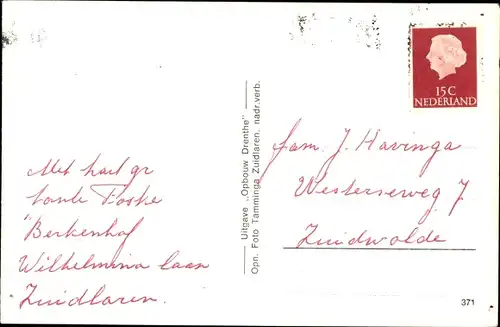 Met hart gr
tante Foske
"Berkenhof
Wilhelmina laan
Zuidlaren.
Uitgave „Opbouw Drenthe”
Opn. Foto Tamminga Zuidlaren. nadr.verb.
15 C
NEDERLAND
fam. J. Havinga
Westerseweg 7
Zuidwolde
371